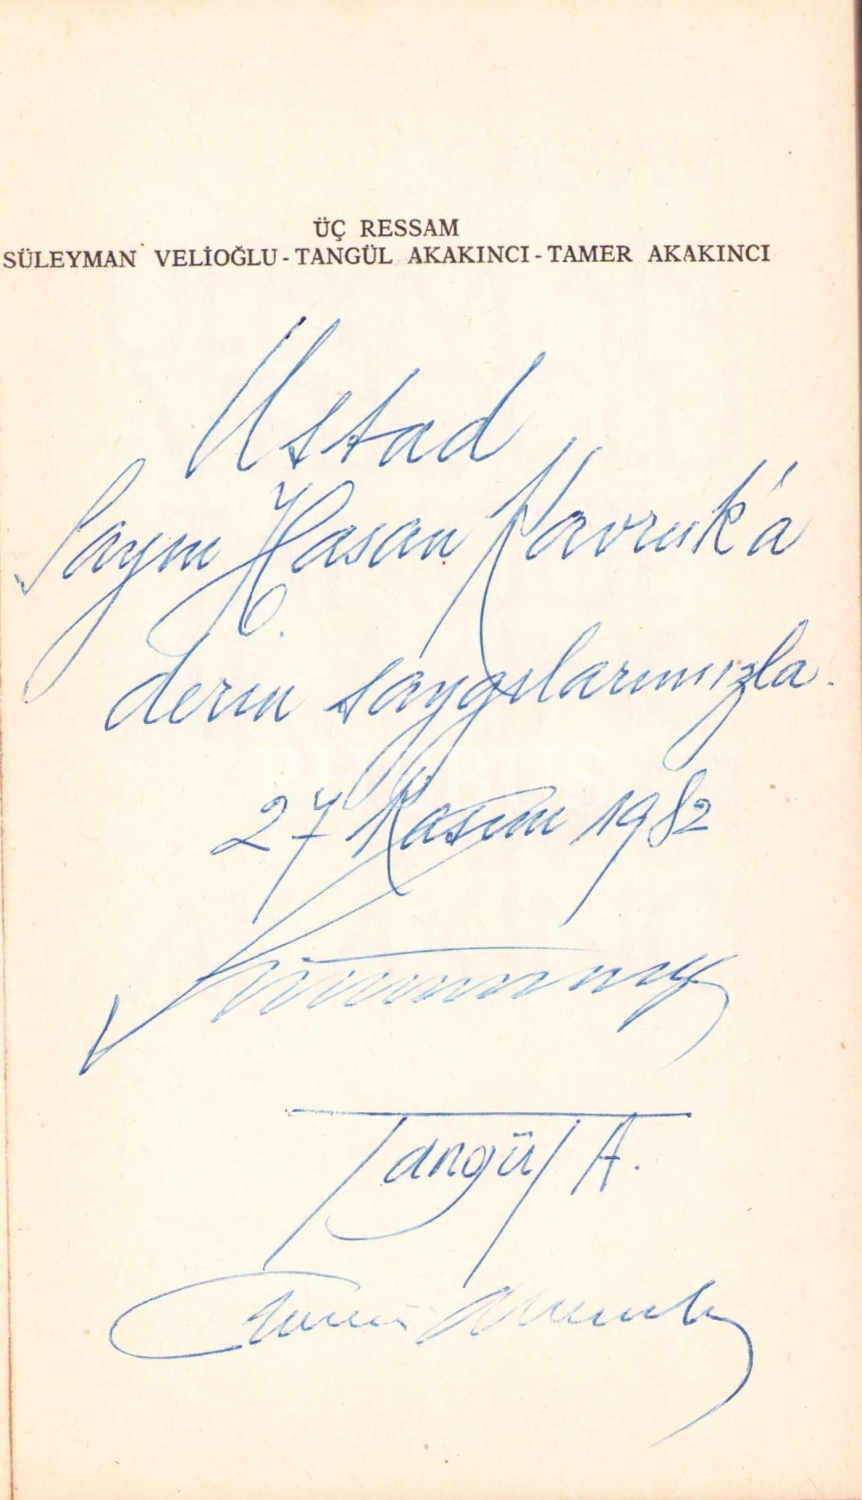 ÜÇ RESSAM
SÜLEYMAN VELİOĞLU - TANGÜL AKAKINCI - TAMER AKAKINCI
Üstad
Sayın Hasan Kavruk'a
derin saygılarımızla.
PHEBUS
27 Kasım 1982
Tangül A.